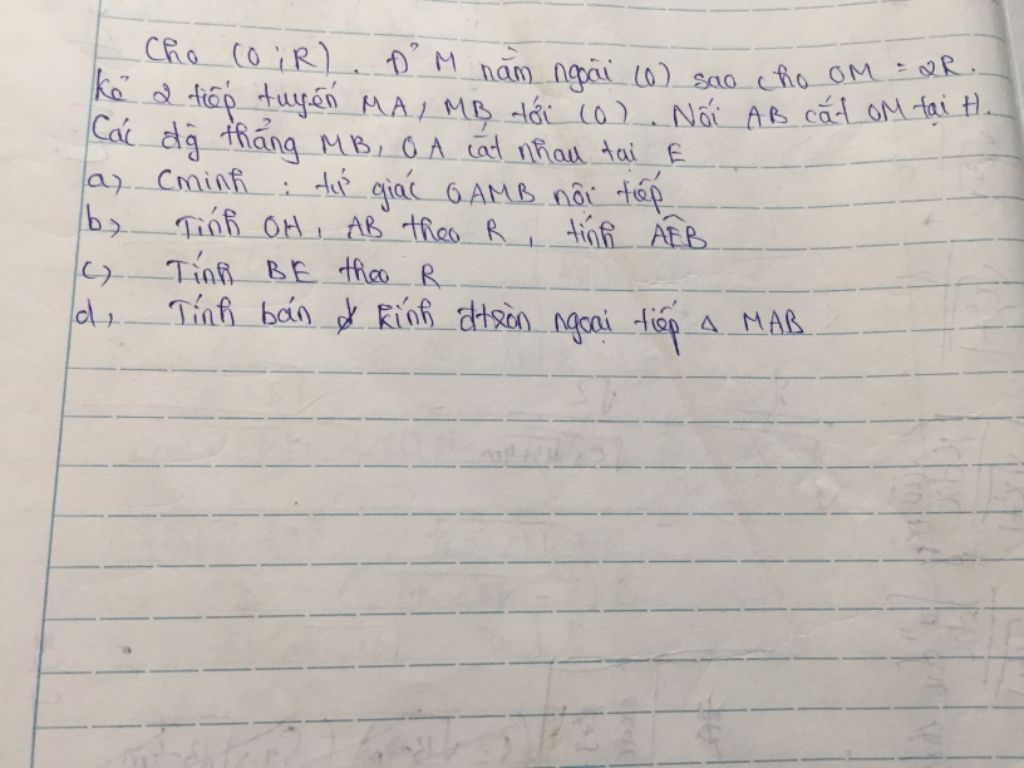 Cho (O;R). Đ' M nằm ngoài (O) sao cho OM = 2R.
Kẻ 2 tiếp tuyến MA, MB tới (O). Nối AB cắt OM tại H.
Các đg thẳng MB, OA cắt nhau tại E
a) Cminh : tứ giác OAMB nội tiếp
b) Tính OH, AB theo R, tính AÊB
c) Tính BE theo R
d, Tính bán kính đtròn ngoại tiếp Δ MAB